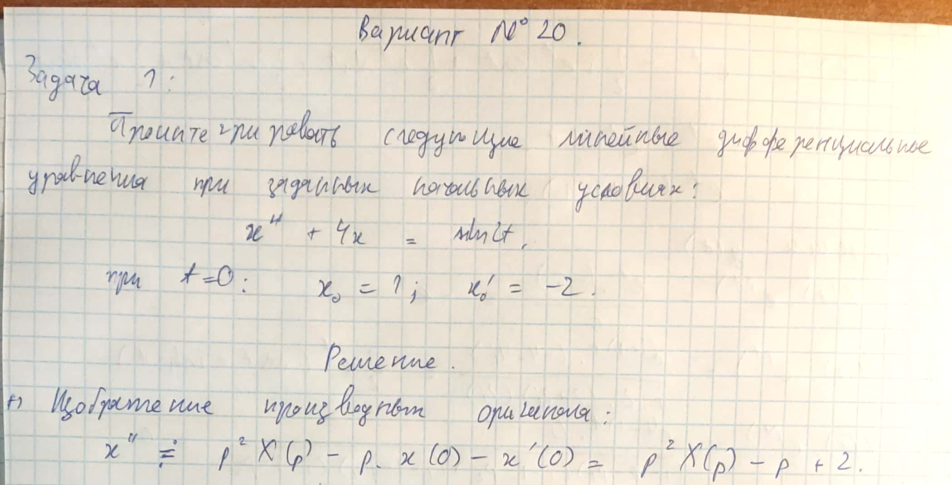 Вариант № 20.
Задача 1:
Проинтегрировать следующие линейные дифференциальные
уравнения при заданных начальных условиях:
x'' + 4x = sin2t,
при t=0: x₀ = 1; x₀' = -2.
Решение.
1) Изображение производных оригинала:
x'' ≓ p²X(p) - p. x(0) - x'(0) = p²X(p) - p + 2.